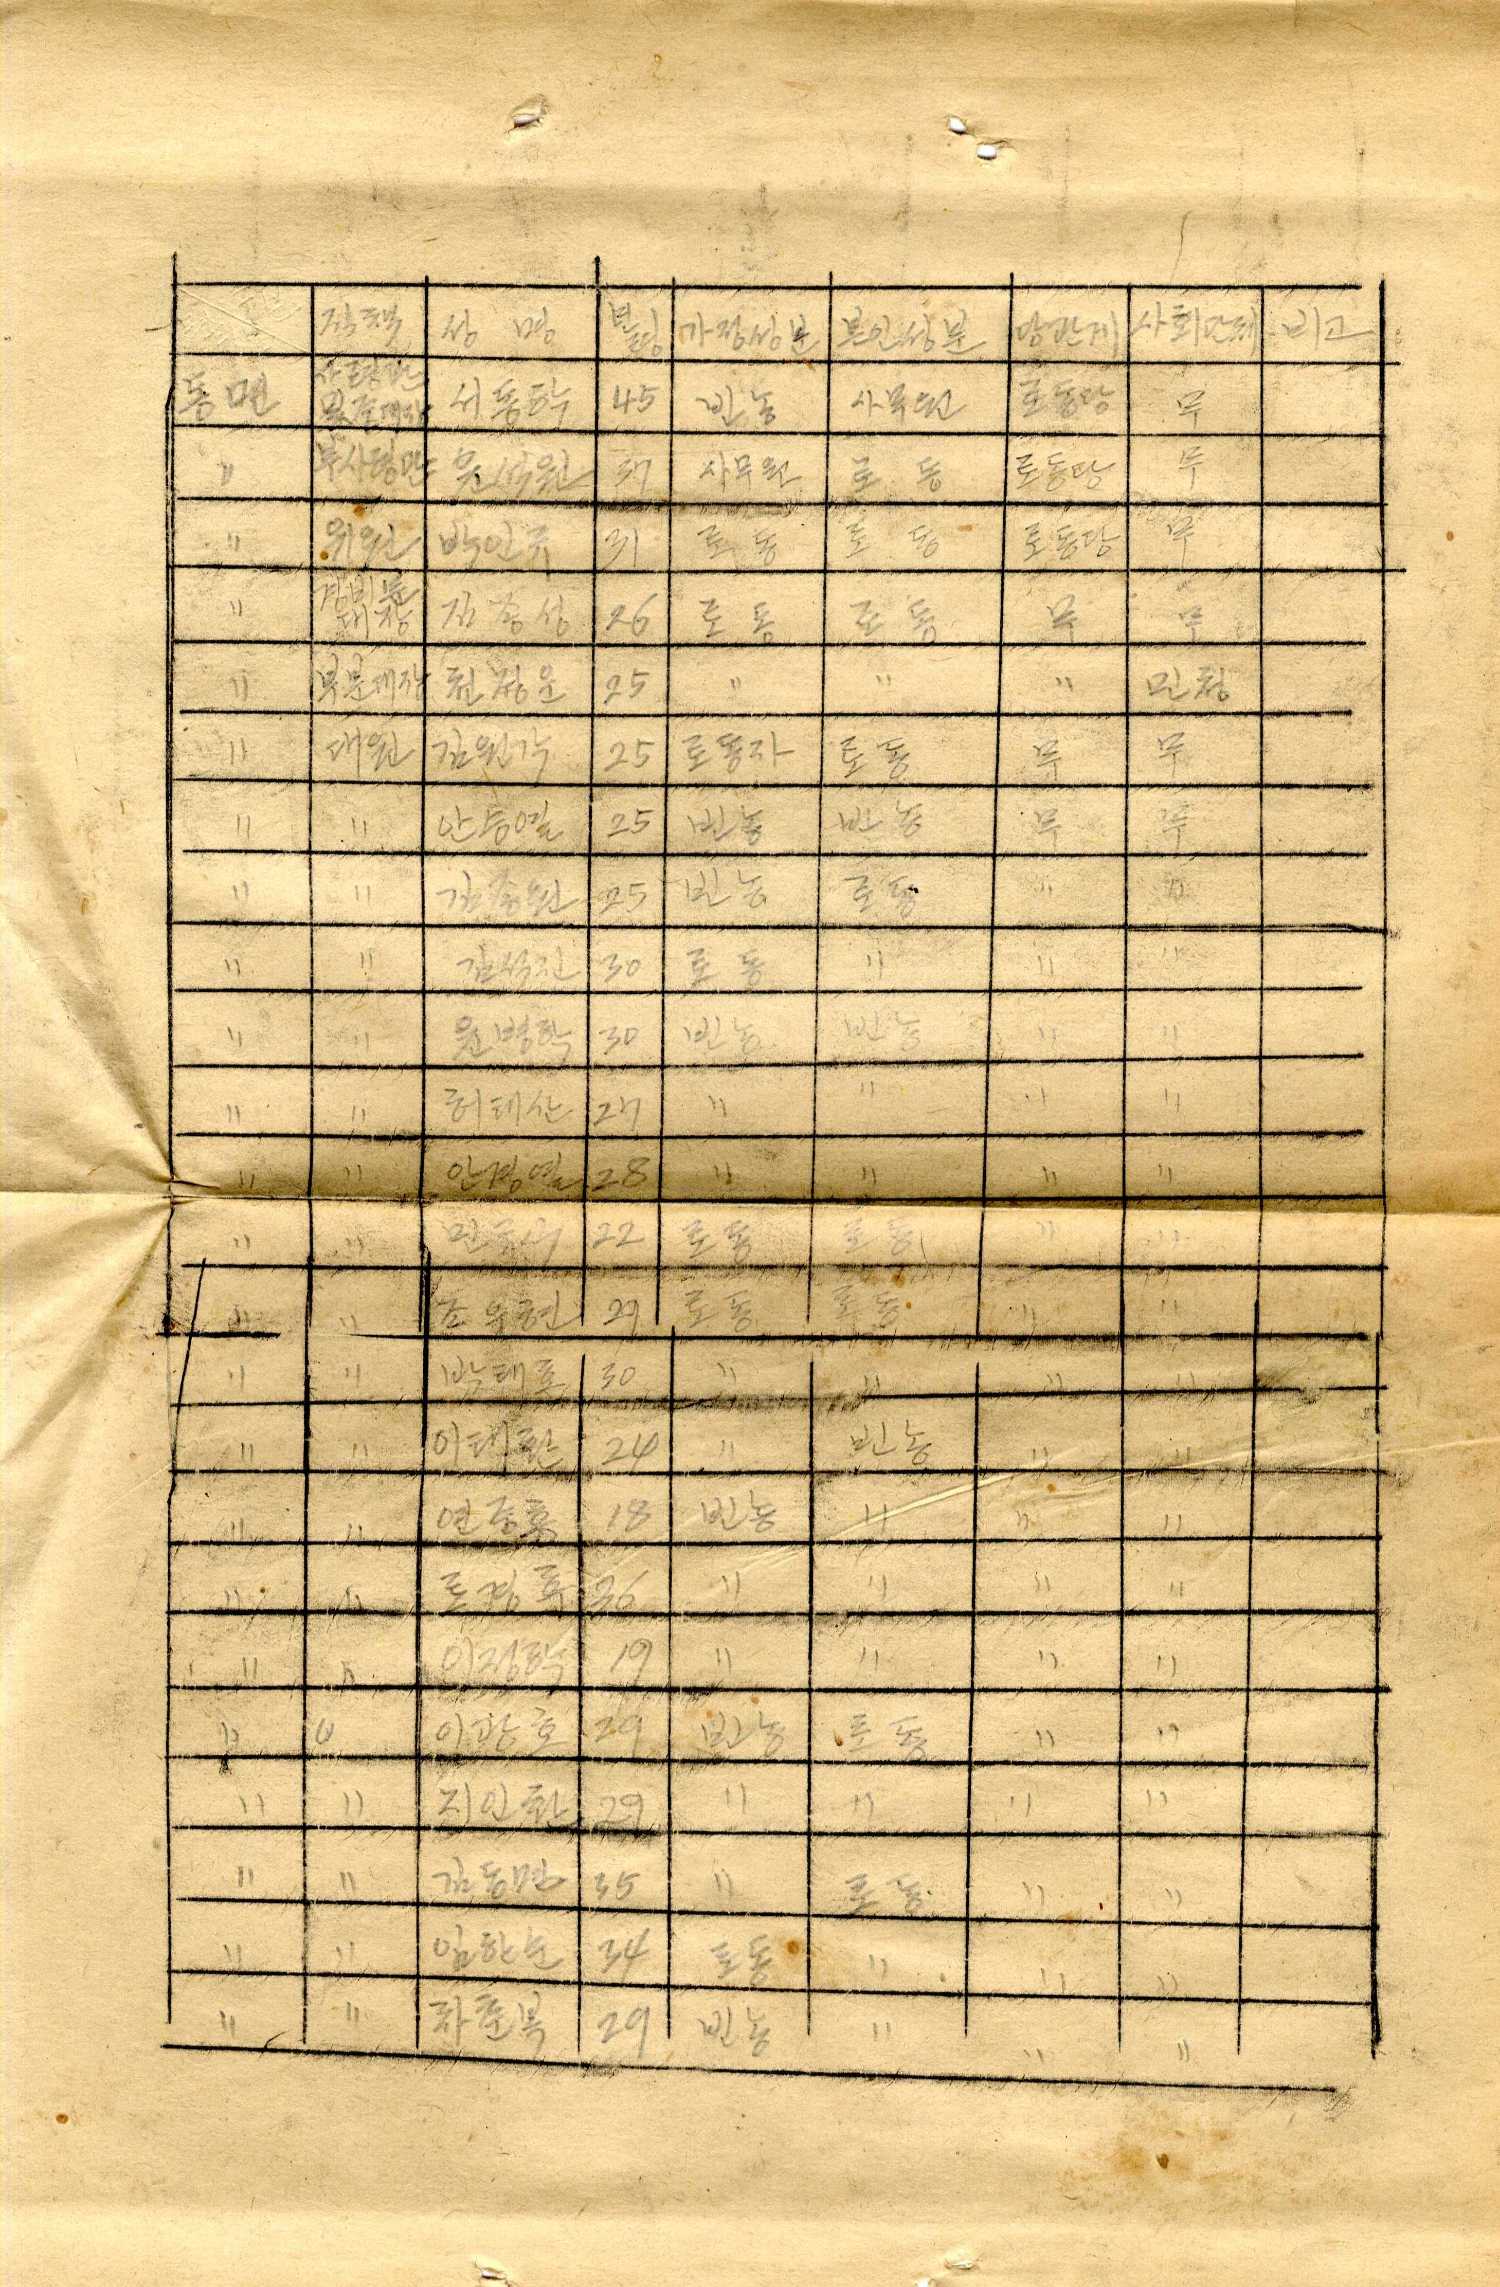 직책 성 명 년령 가정성분 본인성분 당관계 사회단체 비고
동면 45 빈농 사무원 로동당 무
〃 사무원 로 동 로동당 무
〃 위원 박인규 31 로 동 로 동 로동당 무
〃 26 로 동 로 동 무 무
〃 부분대장 25 〃 〃 〃 민청
〃 대원 김원각 25 로동자 로동 무 무
〃 〃 안승열 25 빈농 빈농 무 무
〃 〃 25 빈농 로동 〃 〃
〃 〃 김석진 30 로동 〃 〃 〃
〃 〃 윤병학 30 빈농 빈농 〃 〃
〃 〃 허태산 27 〃 〃 〃 〃
〃 〃 안경열 28 〃 〃 〃 〃
〃 〃 22 로동 로동 〃 〃
〃 〃 29 로동 로동 〃 〃
〃 〃 박태흔 30 〃 〃 〃 〃
〃 〃 이태환 24 〃 빈농 〃 〃
〃 〃 18 빈농 〃 〃 〃
〃 〃 26 〃 〃 〃 〃
〃 〃 19 〃 〃 〃 〃
〃 〃 이광호 29 빈농 로동 〃 〃
〃 〃 지인환 29 〃 〃 〃 〃
〃 〃 35 〃 로동 〃 〃
〃 〃 임한순 34 로동 〃 〃 〃
〃 〃 차준복 29 빈농 〃 〃 〃